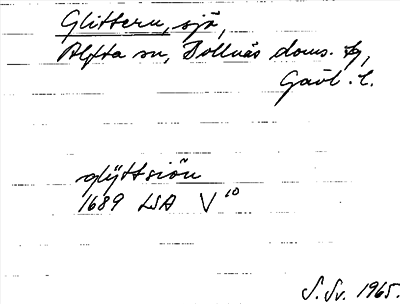 Glittern, sjö,
Alfta sn, Bollnäs doms. tg,
Gävl. l.
glÿttsiön
1689 LSA V¹⁰
S. Sv. 1965.